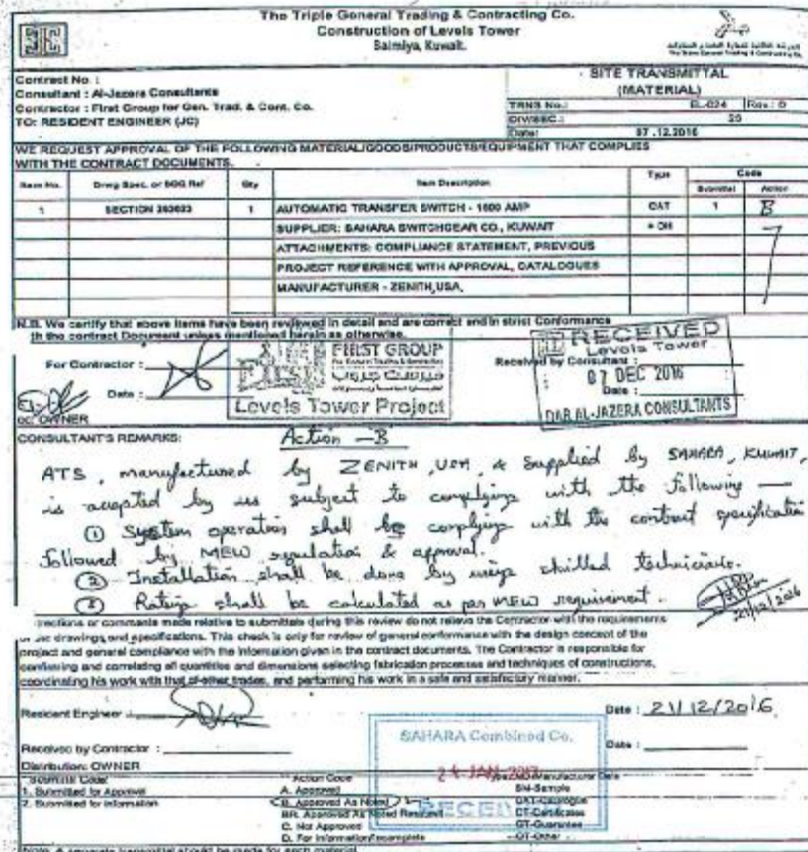 The Triple General Trading & Contracting Co.
Construction of Levels Tower
Salmiya, Kuwait.
Contract No. :
Consultant : Al-Jazera Consultants
Contractor : First Group for Gen. Trad. & Cont. Co.
TO: RESIDENT ENGINEER (JC)
SITE TRANSMITTAL
(MATERIAL)
TRNS No.: EL-024 Rev.: 0
DIV/SEC.:
Date: 07.12.2016
WE REQUEST APPROVAL OF THE FOLLOWING MATERIAL/GOODS/PRODUCTS/EQUIPMENT THAT COMPLIES
WITH THE CONTRACT DOCUMENTS.
Item No. Drwg Spec. or BOQ Ref Qty Item Description Type Code
Submittal Action
1 SECTION 1 AUTOMATIC TRANSFER SWITCH - 1600 AMP CAT 1 B
SUPPLIER: SAHARA SWITCHGEAR CO., KUWAIT
ATTACHMENTS: COMPLIANCE STATEMENT, PREVIOUS
PROJECT REFERENCE WITH APPROVAL, CATALOGUES
MANUFACTURER - ZENITH,USA,
N.B. We certify that above items have been reviewed in detail and are correct and in strict Conformance
in the contract Document unless mentioned herein as otherwise.
For Contractor :
Date :
cc: OWNER
FIRST GROUP
فيرست جروب
Levels Tower Project
RECEIVED
Levels Tower
Received by Consultant :
07 DEC 2016
Date :
DAR AL-JAZERA CONSULTANTS
CONSULTANT'S REMARKS:
Action - B
ATS, manufactured by ZENITH, USA, & supplied by SAHARA, KUWAIT,
is accepted by us subject to complying with the following —
① System operation shall be complying with the contract specification
followed by MEW regulation & approval.
② Installation shall be done by using skilled technicians.
③ Ratings shall be calculated as per MEW requirement.
21/12/2016
corrections or comments made relative to submittals during this review do not relieve the Contractor with the requirements
drawings, and specifications. This check is only for review of general conformance with the design concept of the
project and general compliance with the information given in the contract documents. The Contractor is responsible for
confirming and correlating all quantities and dimensions selecting fabrication processes and techniques of constructions,
coordinating his work with that of other trades, and performing his work in a safe and satisfactory manner.
Resident Engineer :
Date : 21/12/2016
Received by Contractor :
Date :
SAHARA Combined Co.
24 JAN 2017
RECEIVED
Distribution: OWNER
Submittal Code:
1. Submitted for Approval
2. Submitted for Information
Action Code
A. Approved
B. Approved As Noted
BR. Approved As Noted Resubmit
C. Not Approved
D. For Information/Incomplete
MD-Manufacturer Data
SM-Sample
CAT-Catalogue
CT-Certificates
GT-Guarantee
OT-Other
Note: A separate transmittal should be made for each material